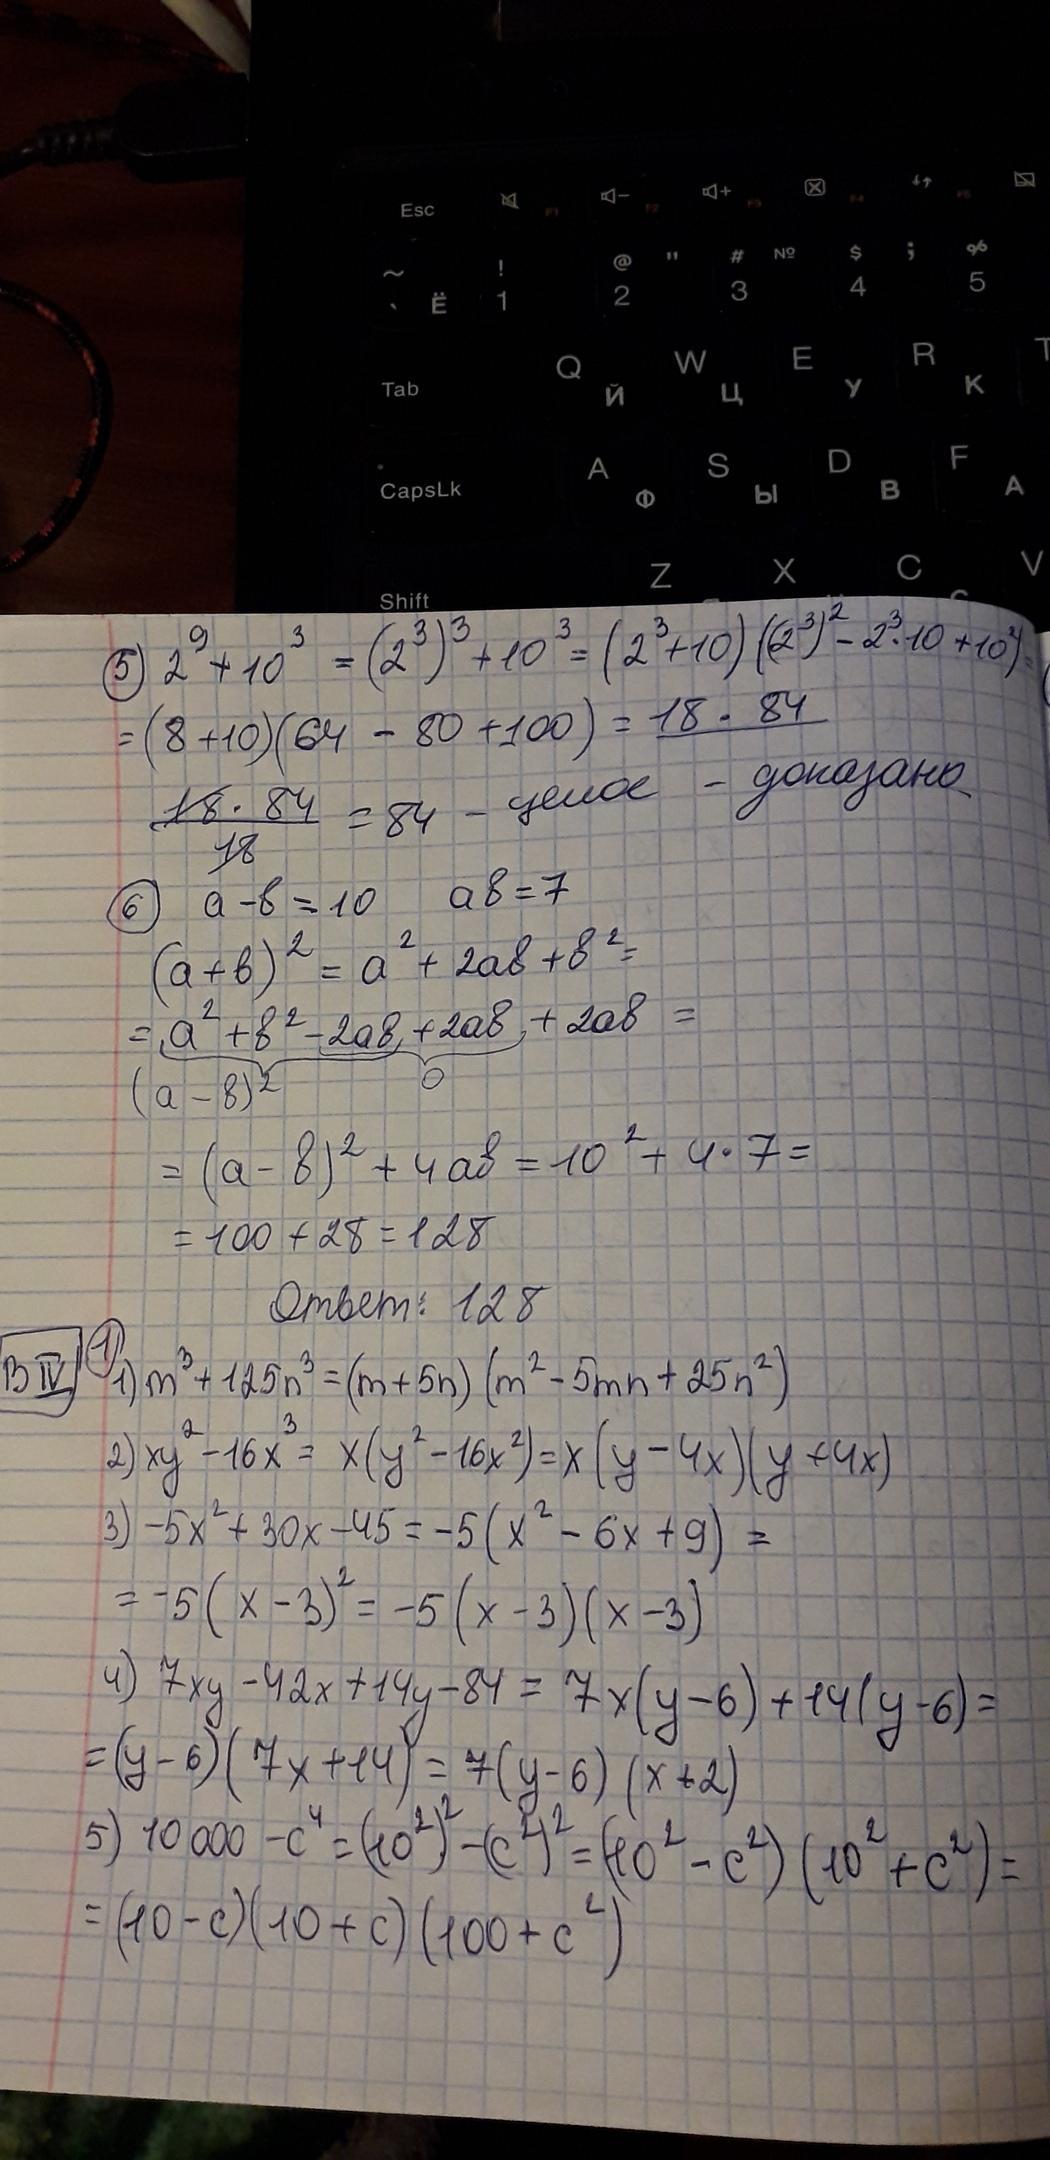 Esc F1 F2 F3 F4 F5
~ ! @ " # № $ ; %
` Ё 1 2 3 4 5
Tab Q Й W Ц E У R К T
CapsLk A Ф S Ы D В F А
Shift Z X C V
5) 2⁹ + 10³ = (2³)³ + 10³ = (2³+10)((2³)² - 2³·10 + 10²) =
= (8+10)(64 - 80 + 100) = 18 · 84
18 · 84 / 18 = 84 - целое - доказано
6) a - b = 10 ab = 7
(a+b)² = a² + 2ab + b² =
= a² + b² - 2ab + 2ab + 2ab =
(a - b)² 0
= (a - b)² + 4ab = 10² + 4·7 =
= 100 + 28 = 128
Ответ: 128
В IV 1
1) m³ + 125n³ = (m+5n)(m² - 5mn + 25n²)
2) xy² - 16x³ = x(y² - 16x²) = x(y - 4x)(y + 4x)
3) -5x² + 30x - 45 = -5(x² - 6x + 9) =
= -5(x - 3)² = -5(x - 3)(x - 3)
4) 7xy - 42x + 14y - 84 = 7x(y - 6) + 14(y - 6) =
= (y - 6)(7x + 14) = 7(y - 6)(x + 2)
5) 10 000 - c⁴ = (10²)² - (c²)² = (10² - c²)(10² + c²) =
= (10 - c)(10 + c)(100 + c²)